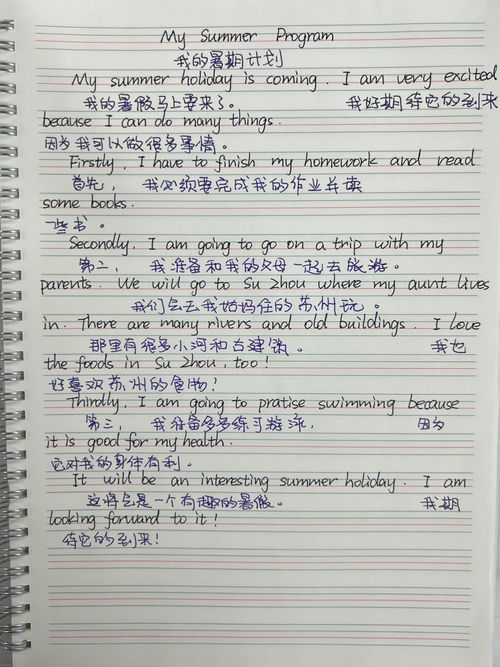 My Summer Program
我的暑期计划
My summer holiday is coming. I am very excited
我的暑假马上要来了。 我好期待它的到来
because I can do many things.
因为我可以做很多事情。
Firstly, I have to finish my homework and read
首先， 我必须要完成我的作业并读
some books.
一些书。
Secondly, I am going to go on a trip with my
第二， 我准备和我的父母一起去旅游。
parents. We will go to Su Zhou where my aunt lives
我们会去我姑妈住的苏州玩。
in. There are many rivers and old buildings. I love
那里有很多小河和古建筑。 我也
the foods in Su Zhou, too!
好喜欢苏州的食物！
Thirdly, I am going to pratise swimming because
第三， 我准备多多练习游泳， 因为
it is good for my health.
它对我的身体有利。
It will be an interesting summer holiday. I am
这将会是一个有趣的暑假。 我期
looking forward to it!
待它的到来！